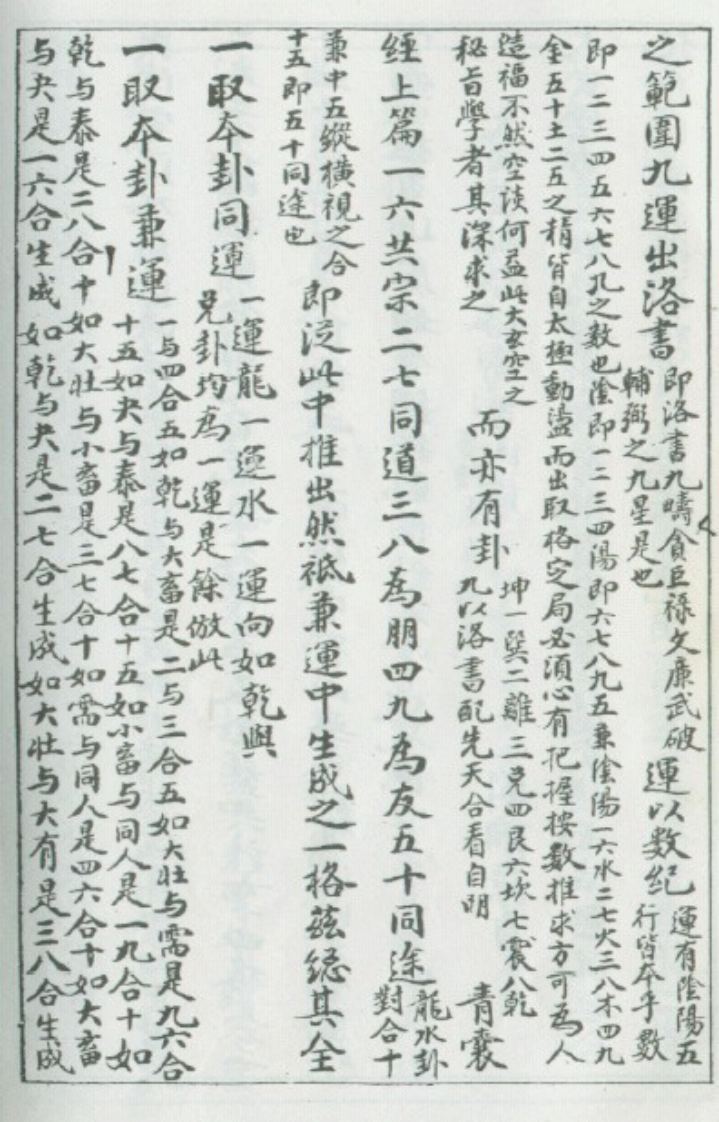 之範圍九運出洛書
即洛書九疇貪巨祿文廉武破
輔弼之九星是也
運以数紀
運有陰陽五
行皆本乎數
即一二三四五六七八九之数也陰即一二三四陽即六七八九五兼陰陽一六水二七火三八木四九
金五十土二五之精皆自太極動盪而出取格定局必須心有把握按數推求方可為人
造福不然空谈何益此大玄空之
秘旨學者其深求之
而亦有卦
坤一巽二離三兌四艮六坎七震八乾
九以洛書配先天合看自明
青囊
經上篇一六共宗二七同道三八為朋四九為友五十同途
龍水卦
對合十
兼中五縱橫視之合
十五即五十同途也
即從此中推出然祇兼運中生成之一格茲總其全
一取本卦同運
一運龍一運水一運向如乾與
兌卦均為一運是餘倣此
一取本卦兼運
一与四合五如乾与大畜是二与三合五如大壮与需是九六合
十五如夬与泰是八七合十五如小畜与同人是一九合十如
乾与泰是二八合十如大壮与小畜是三七合十如需与同人是四六合十如大畜
与夬是一六合生成如乾与夬是二七合生成如大壮与大有是三八合生成